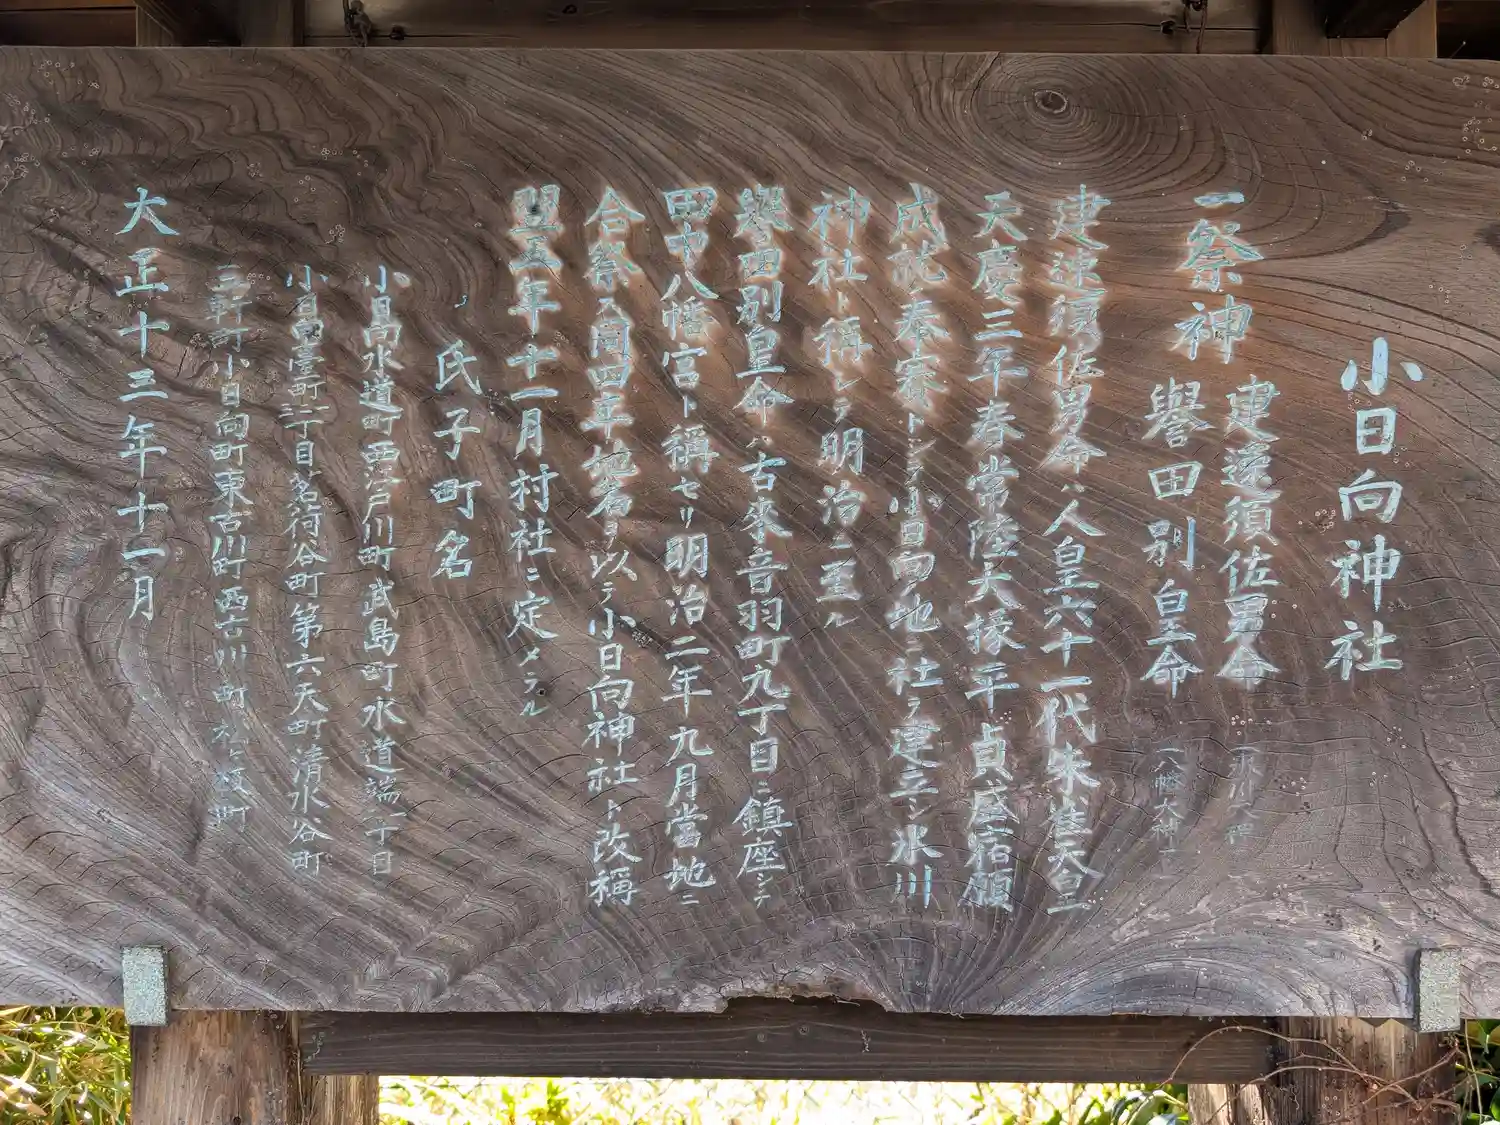 小日向神社
一祭神
建速須佐男命 (氷川大神)
譽田別皇命 (八幡大神)
建速須佐男命ハ人皇六十一代朱雀天皇
天慶三年春常陸大掾平貞盛宿願
成就奉賽トシテ小日向ノ地ニ社ヲ建立シ氷川
神社ト稱シテ明治ニ至ル
譽田別皇命ハ古來音羽町九丁目ニ鎮座シテ
田中八幡宮ト稱セリ明治二年九月當地ニ
合祭ス同四年地名ヲ以テ小日向神社ト改稱
翌五年十一月村社ニ定メラル
、氏子町名
小日向水道町西江戸川町武島町水道端二丁目
小日向臺町三丁目茗荷谷町第六天町清水谷町
三軒町小日向町東古川町西古川町松ヶ枝町
大正十三年十一月